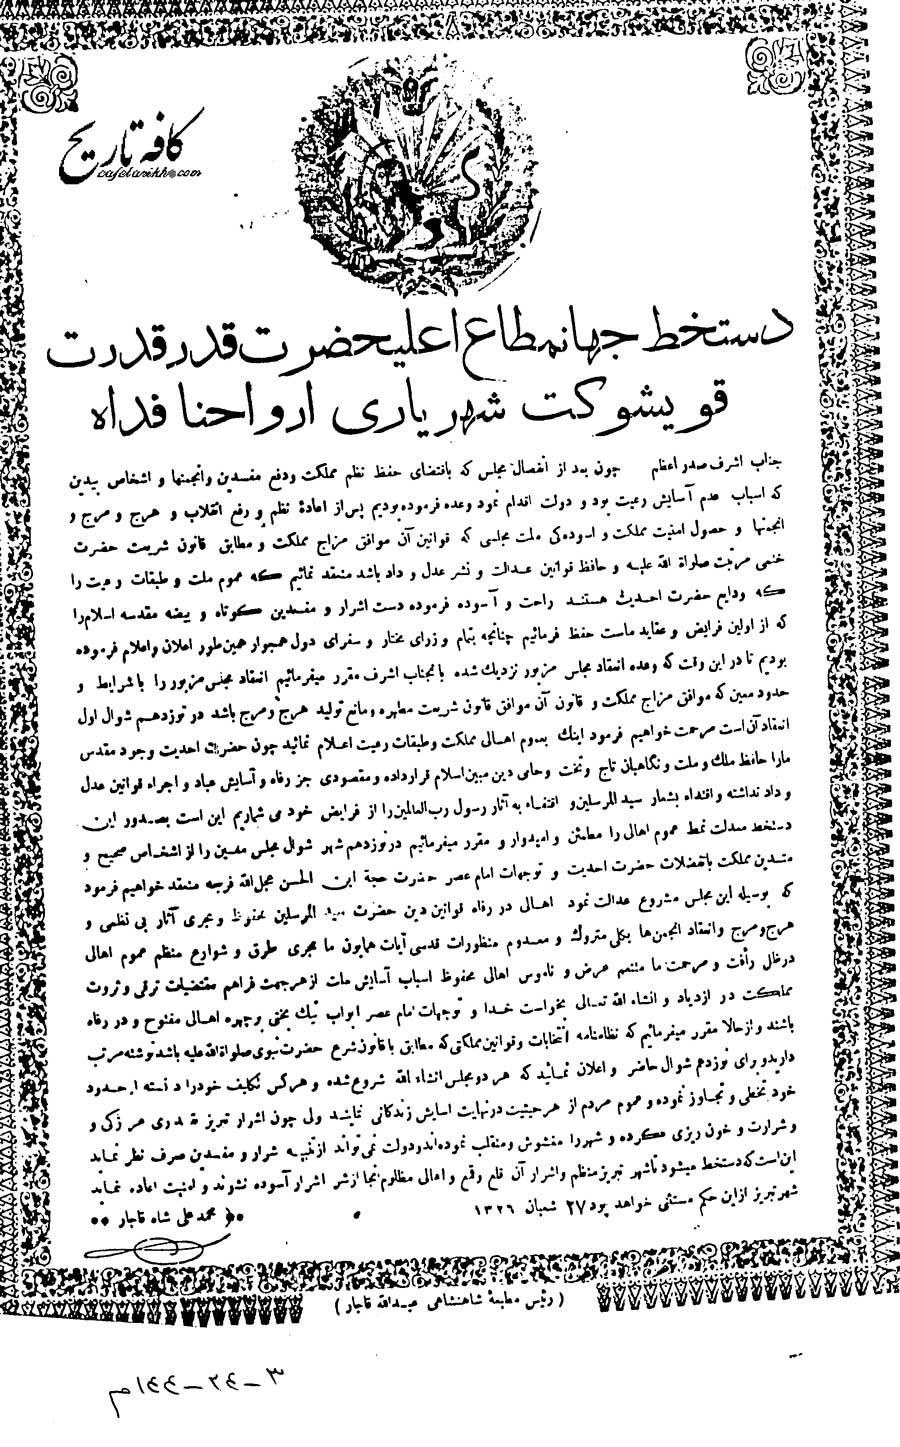 کافه تاریخ
cafetarikh.com
دستخط جهانمطاع اعلیحضرت قدر قدرت
قویشوکت شهریاری ارواحنا فداه
جناب اشرف صدر اعظم چون بعد از انفصال مجلس که باقتضای حفظ نظم مملکت ودفع مفسدین وانجمنها و اشخاص بیدین
که اسباب عدم آسایش رعیت بود و دولت اقدام نمود وعده فرموده بودیم پس از اعادهٔ نظم و رفع انقلاب و هرج و مرج و
انجمنها و حصول امنیت مملکت و آسوده‌گی ملت مجلسی که قوانین آن موافق مزاج مملکت و مطابق قانون شریعت حضرت
ختمی مرتبت صلواة الله علیه و حافظ قوانین عدالت و نشر عدل و داد باشد منعقد نمائیم که عموم ملت و طبقات رعیت را
که ودایع حضرت احدیث هستند راحت و آسوده فرموده دست اشرار و مفسدین کوتاه و بیضه مقدسه اسلام را
که از اولین فرایض و عقاید ماست حفظ فرمائیم چنانچه بتمام وزرای مختار و سفرای دول همجوار همین طور اعلان واعلام فرموده
بودیم تا در این وقت که وعده انعقاد مجلس مزبور نزدیک شده بانجناب اشرف مقرر میفرمائیم انعقاد مجلس مزبور را با شرایط و
حدود معین که موافق مزاج مملکت و قانون آن موافق قانون شریعت مطهره و مانع تولید هرج و مرج باشد در نوزدهم شوال اول
انعقاد آن است مرحمت خواهیم فرمود اینک بعموم اهالی مملکت وطبقات رعیت اعلام نمائید چون حضرت احدیت وجود مقدس
مارا حافظ ملک و ملت و نگاهبان تاج و تخت وحامی دین مبین اسلام قرارداده و مقصودی جز رفاه و آسایش عباد و اجراء قوانین عدل
و داد نداشته و اقتداء بشعار سید المرسلین و اقتفاء به آثار رسول رب العالمین را از فرایض خود می شماریم این است بصدور این
دستخط معدلت نمط عموم اهالی را مطمئن و امیدوار و مقرر میفرمائیم در نوزدهم شهر شوال مجلس معین را از اشخاص صحیح و
متدین مملکت باتفضلات حضرت احدیت و توجهات امام عصر حضرت حجة ابن الحسن عجل الله فرجه منعقد خواهیم فرمود
که بوسیله این مجلس مشروع عدالت نمود اهالی در رفاه قوانین دین حضرت سید المرسلین محفوظ و مجری آثار بی نظمی و
هرج و مرج وانعقاد انجمن‌ها بکلی متروک و معدوم منظورات قدسی آیات همایون ما مجری طرق و شوارع منظم عموم اهالی
درظل رأفت و مرحمت ما متنعم عرض و ناموس اهالی محفوظ اسباب آسایش ملت از هر جهت فراهم مقتضیات ترقی و ثروت
مملکت در ازدیاد و انشاء الله تعالی بخواست خدا و توجهات امام عصر ابواب نیک بختی بچهره اهالی مفتوح و در رفاه
باشند و از حالا مقرر میفرمائیم که نظامنامه انتخابات و قوانین مملکتی که مطابق با قانون شرع حضرت نبوی صلواة الله علیه باشد نوشته مرتب
دارید و برای نوزدهم شوال حاضر و اعلان نمائید که هر دو مجلس انشاء الله شروع شده و هرکس تکلیف خود را دانسته از حدود
خود تخطی و تجاوز ننموده و عموم مردم از هر حیثیت در نهایت اسایش زندگانی نمایند ولی چون اشرار تبریز بقدری هرزگی و
و شرارت و خون ریزی کرده و شهر را مغشوش و منقلب نموده‌اند ودولت نمی تواند از تنبیه اشرار و مفسدین صرف نظر نماید
این است که دستخط میشود تا شهر تبریز منظم واشرار آن قلع وقمع و اهالی مظلوم آنجا از شر اشرار آسوده نشوند و امنیت اعاده نماید
شهر تبریز از این حکم مستثنی خواهد بود ۲۷ شعبان ۱۳۲۶ محمد علی شاه قاجار
( رئیس مطبعهٔ شاهنشاهی عبدالله قاجار )
۳-۲۴-۱۴۴م